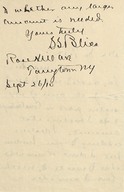 & whether any larger
amount is needed
Yours truly
Rose Hill Ave
Tarrytown NY
Sept 26/10